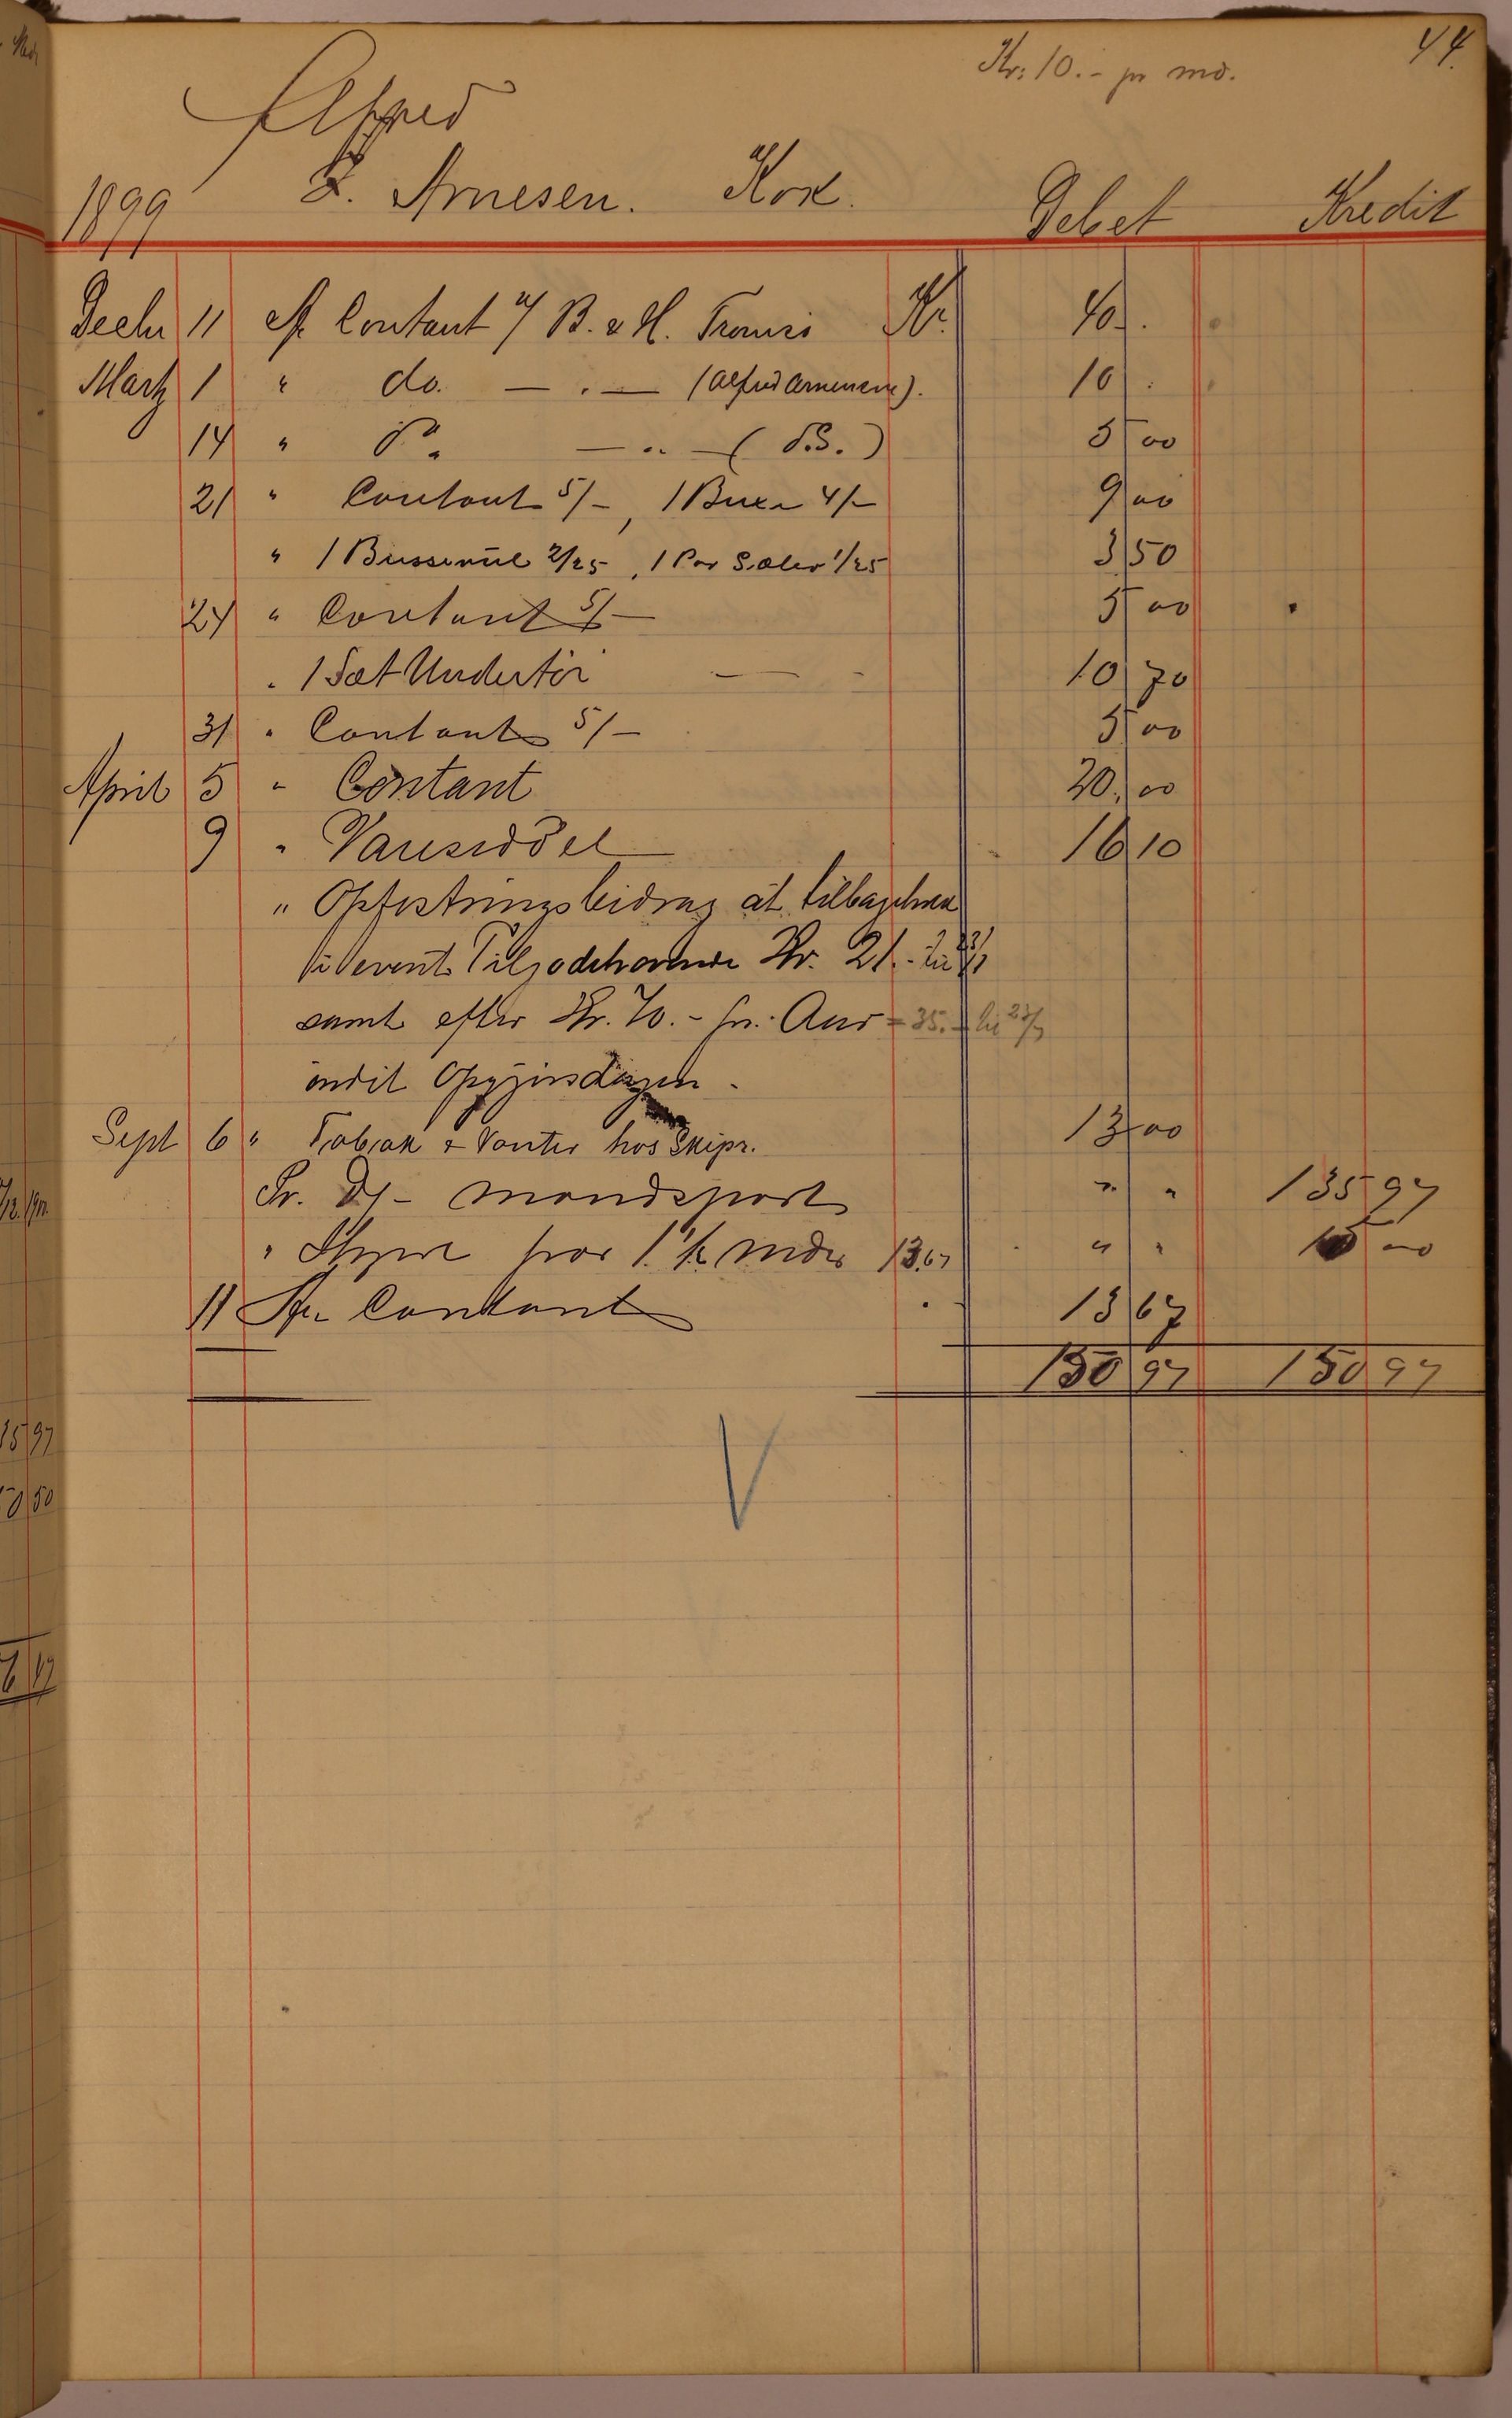 Kr: 10.- pr md. 44.
Alfred
Z. Arnesen. Kok.
1899 Debet Kredit
Decbr 11 Af Contant B. & H. Kr. 40 .
Marts 1 " do. — . — (Alfred Arnesen). 10 .
14 " Do. — .. — ( d.S. ) 5 00
21 " Contant 5/-, 1 Buxe 4/- 9 00
" 1 Busserul 2/25, 1 Par Seler 1/25 3 50
24 " Contant 5/- 5 00
" 1 Sæt Undertøi 10 70
31 " Contant 5/- 5 00
April 5 " Contant 20 00
9 " Vareseddel 16 10
" Opfostringsbidrag at tilbageholde
i event. Tilgodehavende Kr. 21.-
samt efter Kr. 70.- pr. Aar = 35.-
indtil Opgjørsdagen.
Sept 6 " Tobak & Vanter hos Skipr. 13 00
Pr. Dj- mandspart " " 135 97
" Hyre for 1 1/2 mdr 13.67 " " 15 00
11 An Contant 13 67
150 97 150 97